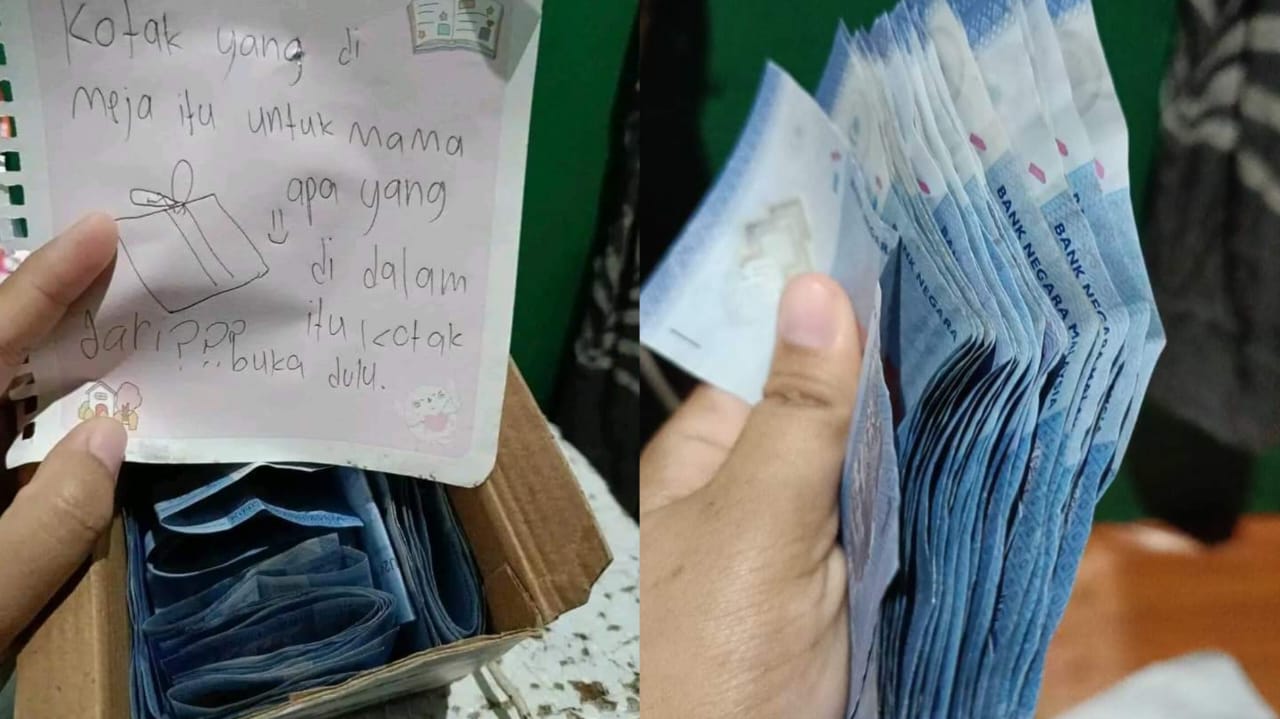 Kotak yang di
meja itu untuk mama
apa yang
di dalam
itu kotak
dari???
..buka dulu.
BANK NEGARA
BANK NEGARA MA
BANK NEGA